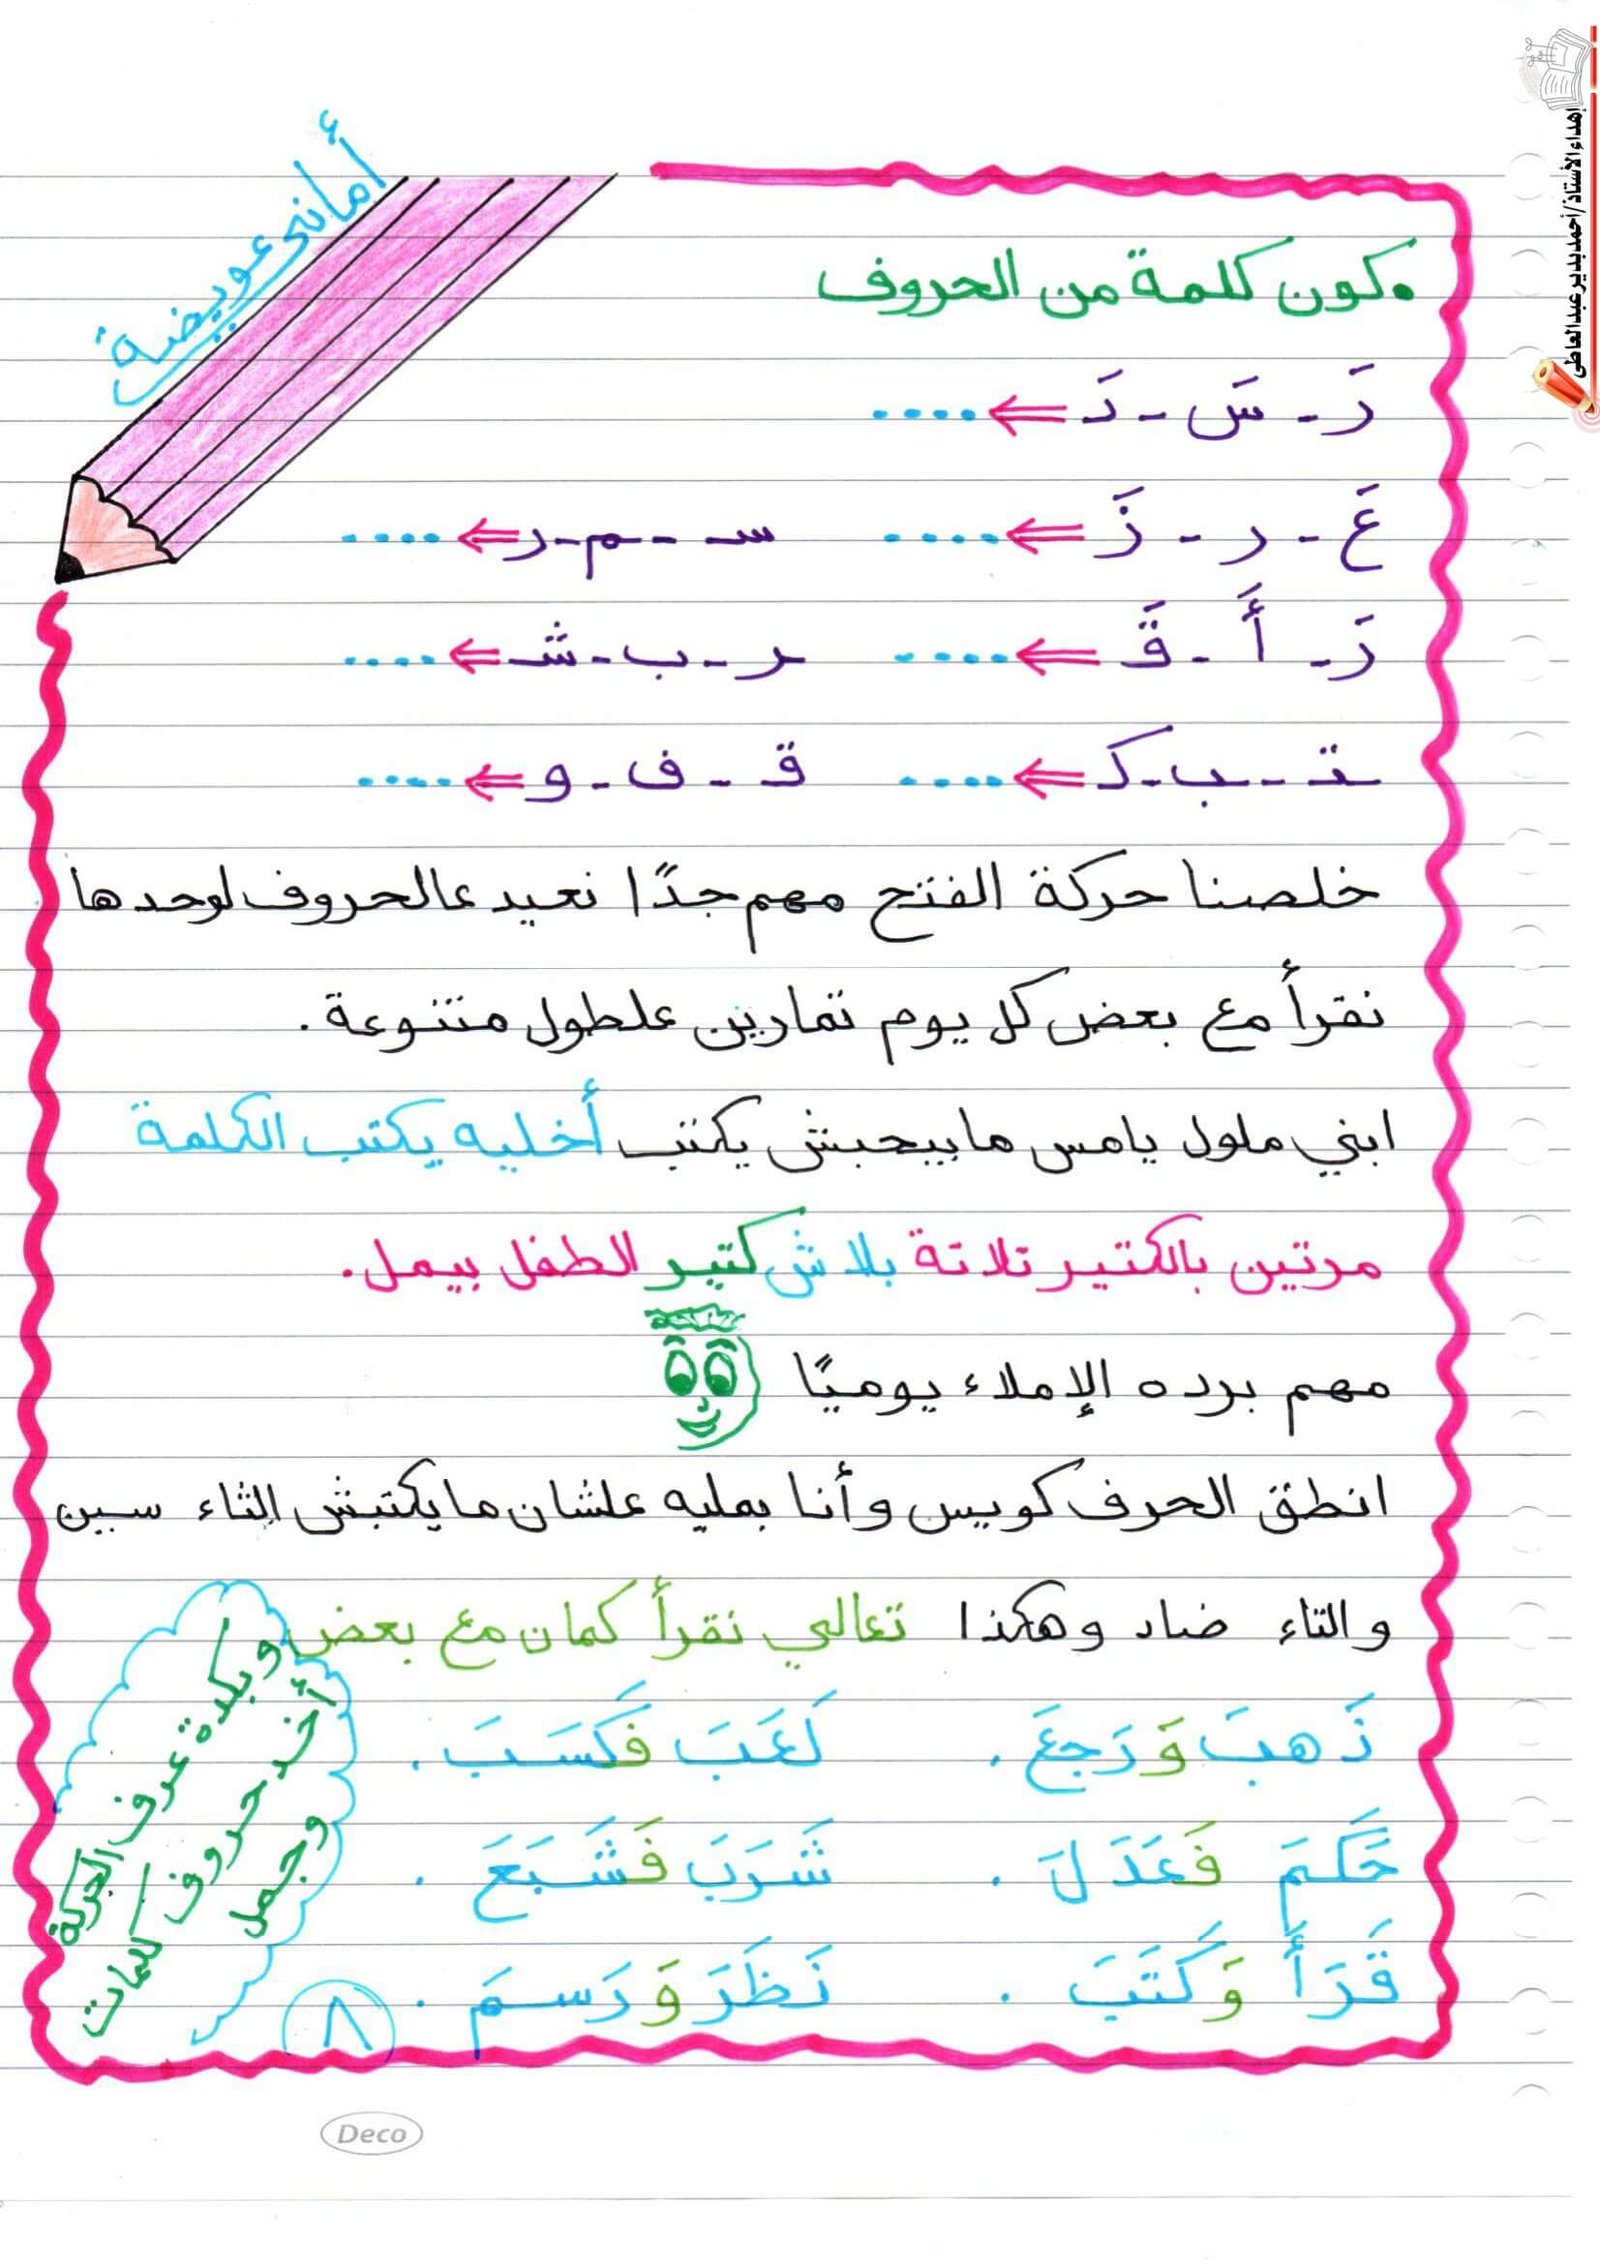 إهداء الأستاذ/أحمد بدير عبد العاطى
أمانى عويضة
• كون كلمة من الحروف
دَ - سَ - دَ ⇐ ....
عَ - ر - زَ ⇐ ..... سـ - م - ر ⇐ .....
رَ - أَ - قَ ⇐ .... حر - ب - شـ ⇐ ....
تـ - ـبـ - كـ ⇐ .... قـ - ف - و ⇐ ....
خلصنا حركة الفتح مهم جدًا نعيد عالحروف لوحدها
نقرأ مع بعض كل يوم تمارين علطول متنوعة.
ابني ملول يامس مابيحبش يكتب أخليه يكتب الكلمة
مرتين بالكتير تلاتة بلاش كتير الطفل بيمل.
مهم برده الإملاء يوميًا
انطق الحرف كويس وأنا بمليه علشان مايكتبش الثاء سين
والتاء ضاد وهكذا تعالي نقرأ كمان مع بعض
ذَهبَ وَ رَجعَ . لَعَبَ فَكَسَبَ .
حَكَمَ فَعَدَلَ . شَرَبَ فَشَبَعَ .
قَرَأَ وَكَتَبَ . نَظَرَ وَ رَسمَ .
وبكدة عرف الحركة
أخد حروف كلمات
وجمل
٨
Deco